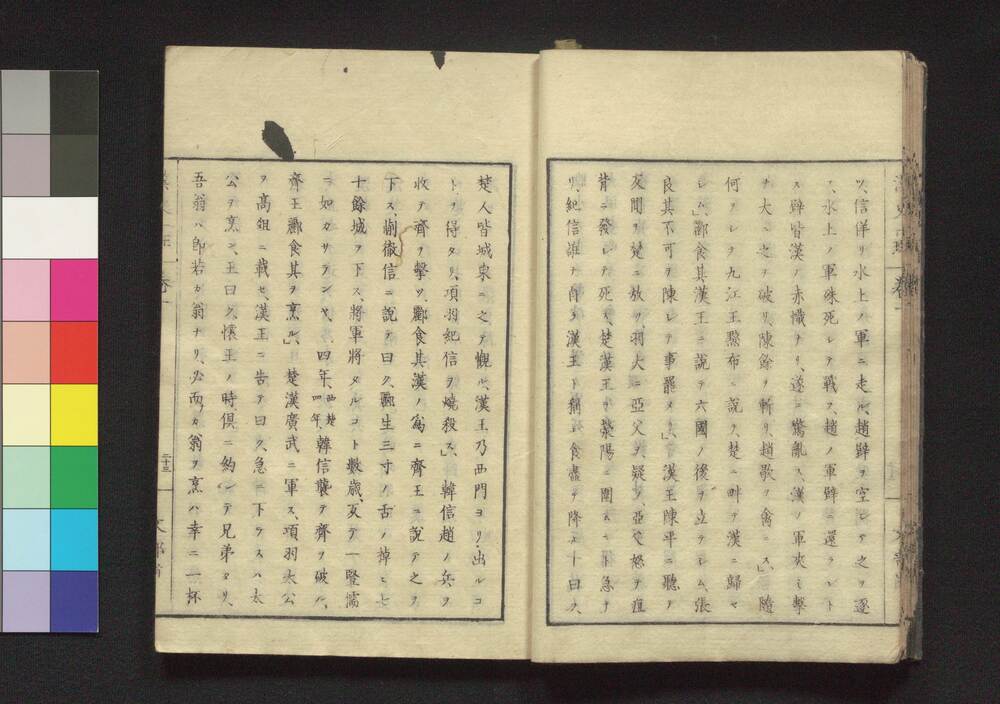 ツ、信佯リ水上ノ軍ニ走ル、趙壁ヲ空シテ之ヲ逐
フ、水上ノ軍殊死シテ戰フ、趙ノ軍壁ニ還ラント
ス壁皆漢ノ赤幟ナリ、遂ニ驚亂ス、漢ノ軍夾ミ擊
ナ大ニ之ヲ破リ陳餘ヲ斬リ趙歇ヲ禽ニス」、隨
何ヲシテ九江王黥布ニ說ク、楚ニ畔ヲ漢ニ歸セ
シム」、酈食其漢王ニ說テ六國ノ後ヲ立テシム、張
良其不可ヲ陳シテ事罷メリ」、漢王陳平ニ聽テ
反間ヲ楚ニ放ツ、羽大ニ亞父ヲ疑フ、亞父怒ヲ疽
背ニ發シテ死ス、楚漢王ヲ滎陽ニ圍ムヿ急ナ
リ、紀信誰テ自ラ漢王ト稱シ食盡テ降ルト曰ク、
楚人皆城東ニ之テ觀ル、漢王乃西門ヨリ出ルコ
トヲ得タリ、項羽紀信ヲ燒殺ス」、韓信趙ノ兵ヲ
收テ齊ヲ擊ツ、酈食其漢ノ爲ニ齊王ニ說テ之ヲ
下ス、蒯徹信ニ說テ曰ク、酈生三寸ノ舌ノ掉ヒ七
十餘城ヲ下ス、將軍將タルコト數歲、反テ一豎儒
ニ如カサランヤ、四年、西楚四年、韓信襲テ齊ヲ破ル、
齊王酈食其ヲ烹ル」、楚漢廣武ニ軍ス、項羽太公
ヲ高俎ニ載セ、漢王ニ告テ曰ク、急ニ下ラスハ太
公ヲ烹ン、王曰ク、懷王ノ時俱ニ約シテ兄弟タリ、
吾翁ハ即若カ翁ナリ、必而カ翁ヲ烹ハ幸ニ一杯
二十三